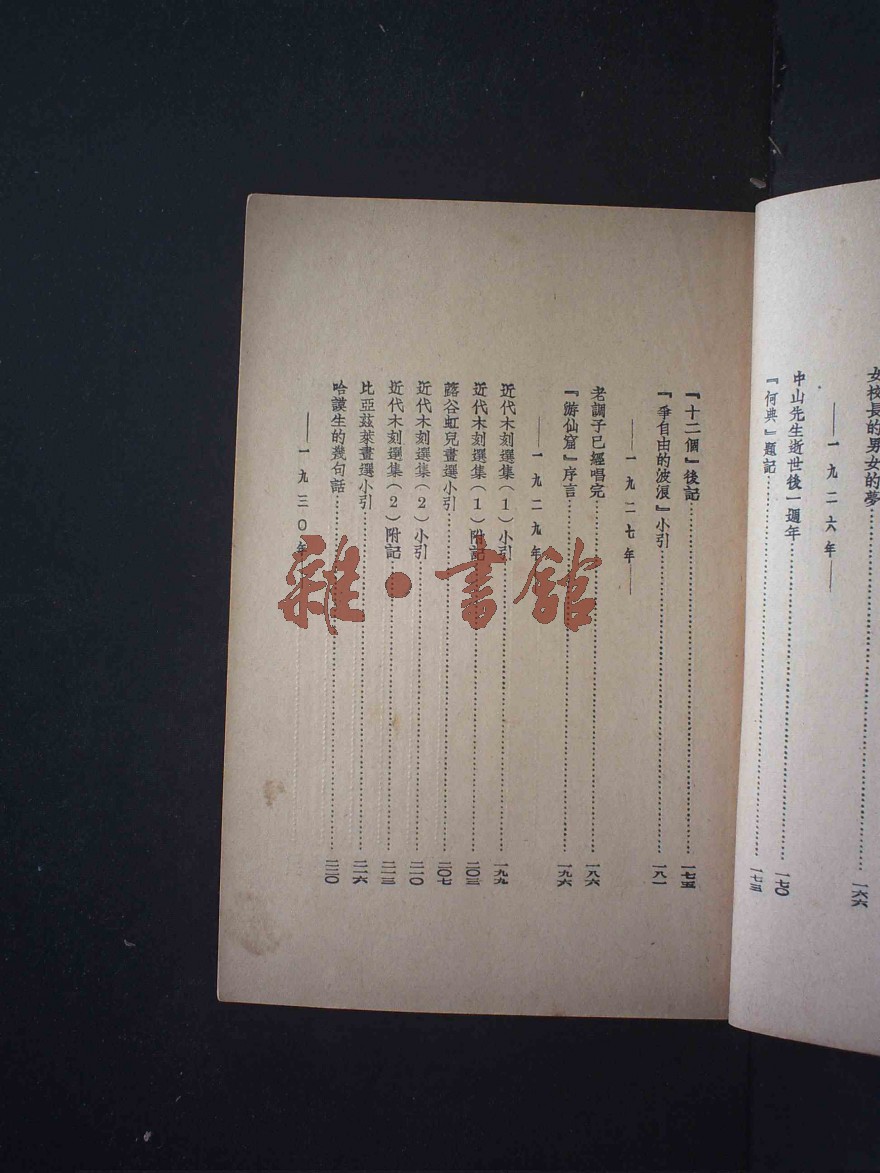 女校長的男女的夢……一六六
——一九二六年——
中山先生逝世後一週年……一七〇
『何典』題記……一七三
『十二個』後記……一七五
『爭自由的波浪』小引……一八一
——一九二七年——
老調子已經唱完……一八六
『游仙窟』序言……一九六
——一九二九年——
近代木刻選集（1）小引……一九九
近代木刻選集（1）附記……二〇三
蕗谷虹兒畫選小引……二〇七
近代木刻選集（2）小引……二一〇
近代木刻選集（2）附記……二一三
比亞茲萊畫選小引……二一六
哈謨生的幾句話……二二〇
——一九三〇年
雜·書館